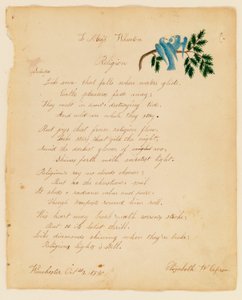 To Miss Wharton
Religion
Like snow that falls where waters glide
Earth's pleasures fade away;
They melt in time's destroying tide,
And cold are while they stay
But joys that from religion flow
Like stars that gild the night
Amid the darkest gloom of woe
Shine forth with sweetest light.
Religion's ray no clouds obscure;
But o'er the christian's soul
It sheds a radiance calm and pure
Though tempests round him roll.
His heart may break with sorrow's stroke;
But to its latest thrill
Like diamonds shining when they're broke
Religion lights it still.
Winchester Oct
Elizabeth